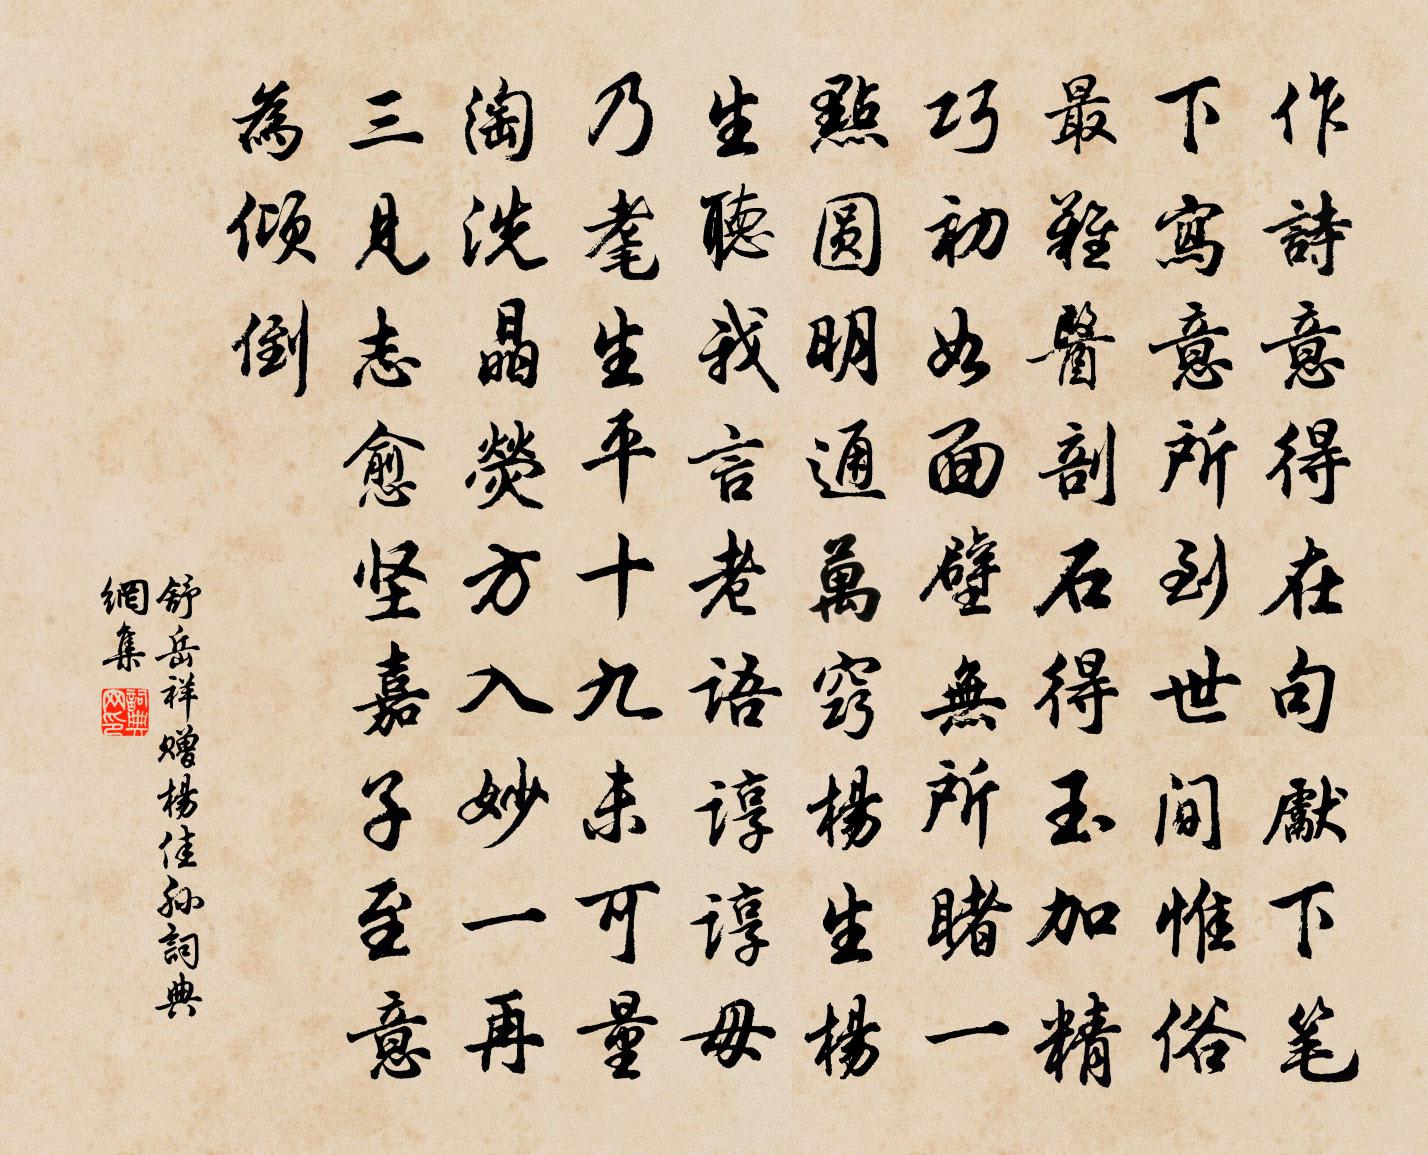 作詩意得在句獻下笔
下寫意所到世间惟俗
最難醫剖石得玉加精
巧初如面壁無所睹一
點圓明通萬窍楊生楊
生聽我言老语谆谆毋
乃耄生平十九未可量
淘洗晶熒方入妙一再
三見志愈坚嘉子至意
為倾倒
舒岳祥赠楊佳孙詞典
網集
詞典網印